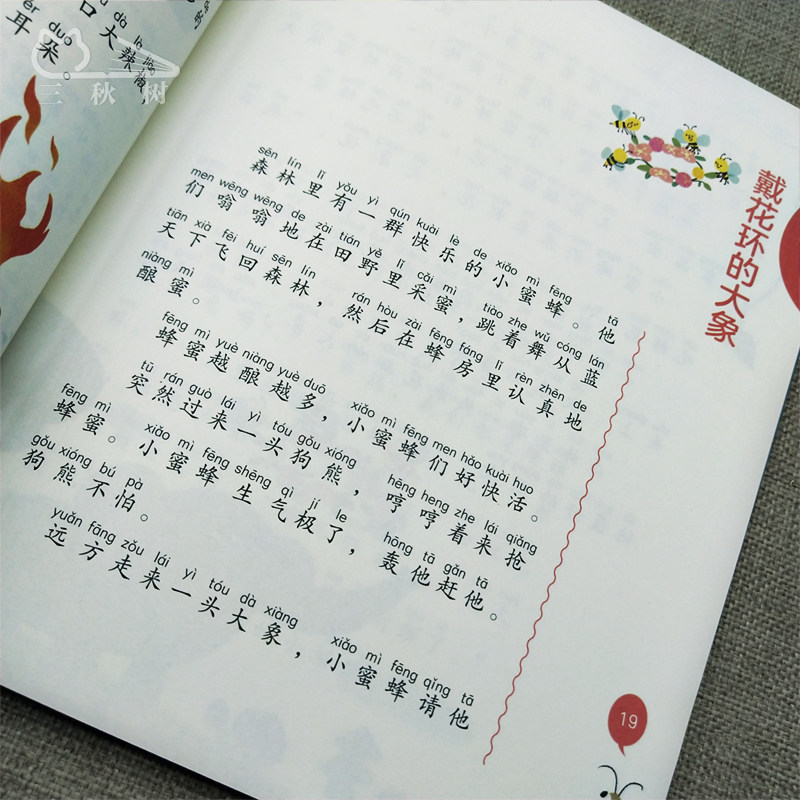 三秋树
dà là
口大辣
ěr duo
耳朵。
戴花环的大象
sēn lín lǐ yǒu yì qún kuài lè de xiǎo mì fēng tā
森林里有一群快乐的小蜜蜂。他
men wēng wēng de zài tián yě lǐ cǎi mì tiào zhe wǔ cóng lán
们嗡嗡地在田野里采蜜，跳着舞从蓝
tiān xià fēi huí sēn lín rán hòu zài fēng fáng lǐ rèn zhēn de
天下飞回森林，然后在蜂房里认真地
niàng mì
酿蜜。
fēng mì yuè niàng yuè duō xiǎo mì fēng men hǎo kuài huo
蜂蜜越酿越多，小蜜蜂们好快活。
tū rán guò lái yì tóu gǒu xióng hēng heng zhe lái qiǎng
突然过来一头狗熊，哼哼着来抢
fēng mì xiǎo mì fēng shēng qì jí le hōng tā gǎn tā
蜂蜜。小蜜蜂生气极了，轰他赶他。
gǒu xióng bú pà
狗熊不怕。
yuǎn fāng zǒu lái yì tóu dà xiàng xiǎo mì fēng qǐng tā
远方走来一头大象，小蜜蜂请他
19